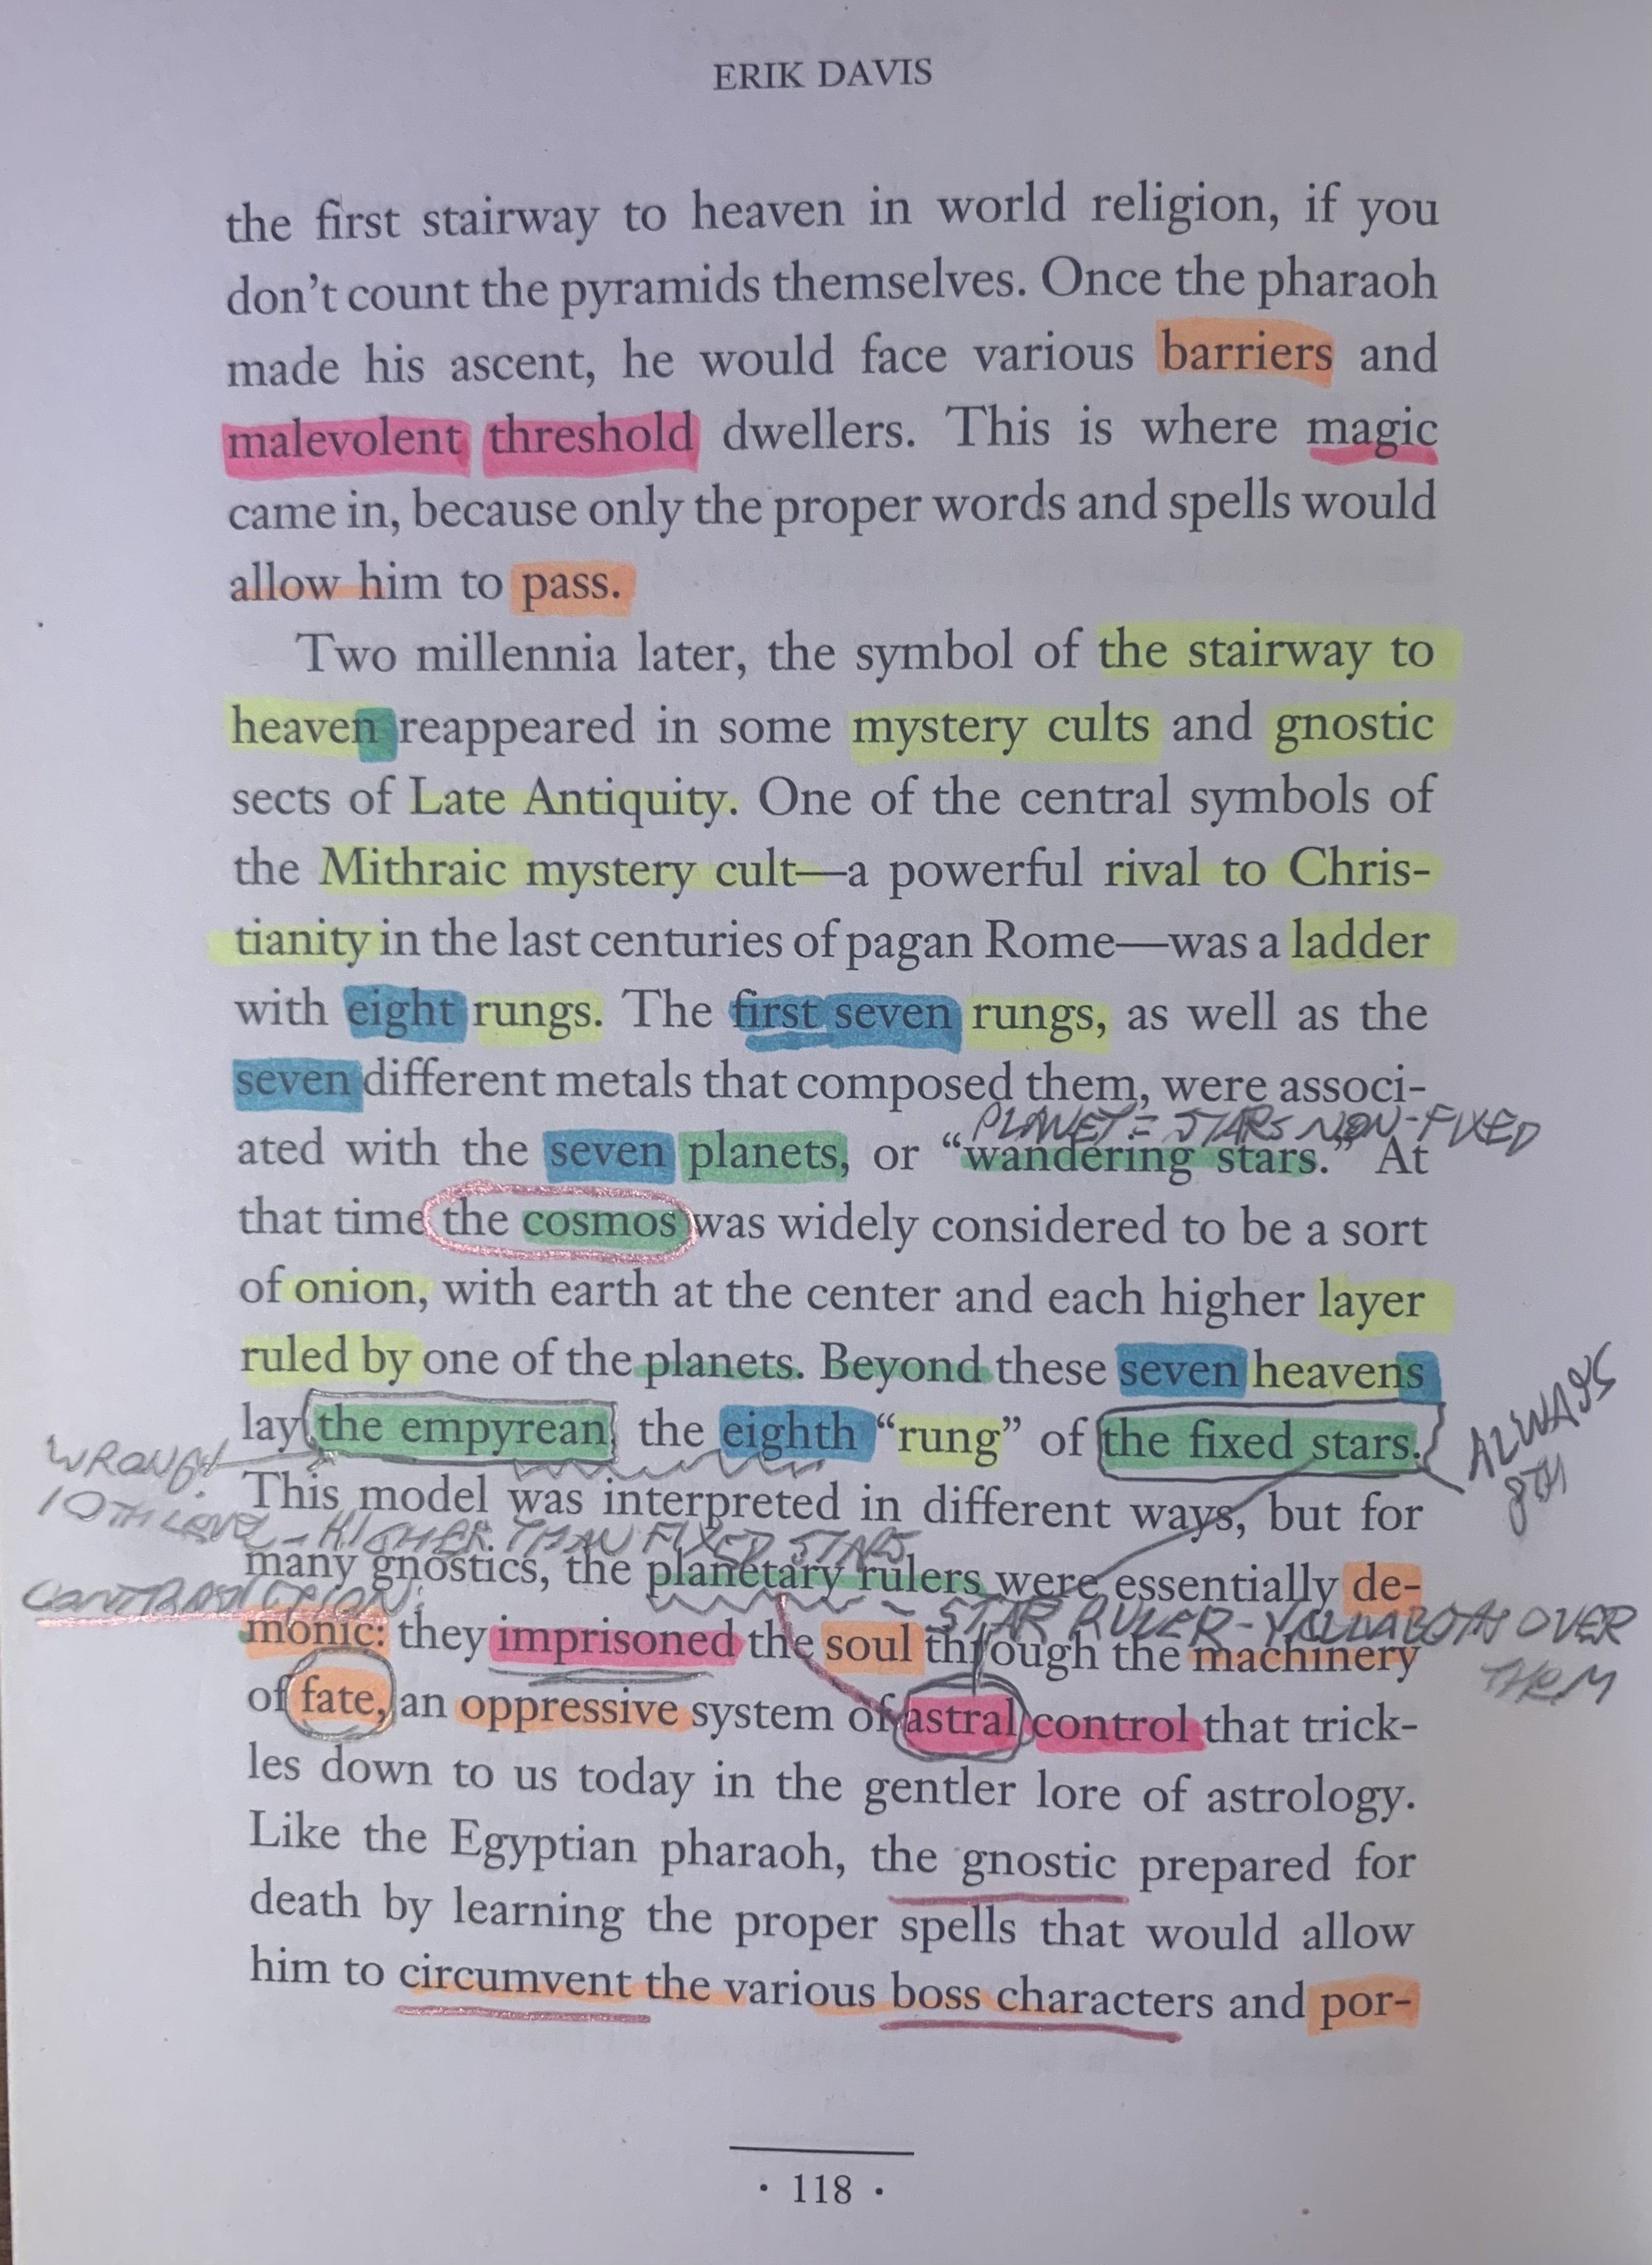 ERIK DAVIS
the first stairway to heaven in world religion, if you
don't count the pyramids themselves. Once the pharaoh
made his ascent, he would face various barriers and
malevolent threshold dwellers. This is where magic
came in, because only the proper words and spells would
allow him to pass.
Two millennia later, the symbol of the stairway to
heaven reappeared in some mystery cults and gnostic
sects of Late Antiquity. One of the central symbols of
the Mithraic mystery cult—a powerful rival to Chris-
tianity in the last centuries of pagan Rome—was a ladder
with eight rungs. The first seven rungs, as well as the
seven different metals that composed them, were associ-
PLANET = STARS NON-FIXED
ated with the seven planets, or “wandering stars.” At
that time the cosmos was widely considered to be a sort
of onion, with earth at the center and each higher layer
ruled by one of the planets. Beyond these seven heavens
lay the empyrean, the eighth “rung” of the fixed stars.
ALWAYS
8TH
WRONG!
This model was interpreted in different ways, but for
10TH LEVEL - HIGHER THAN FIXED STARS
many gnostics, the planetary rulers were essentially de-
CONTRADICTION:
STAR RULER - YALLABOTH OVER
THEM
monic: they imprisoned the soul through the machinery
of fate, an oppressive system of astral control that trick-
les down to us today in the gentler lore of astrology.
Like the Egyptian pharaoh, the gnostic prepared for
death by learning the proper spells that would allow
him to circumvent the various boss characters and por-
· 118 ·